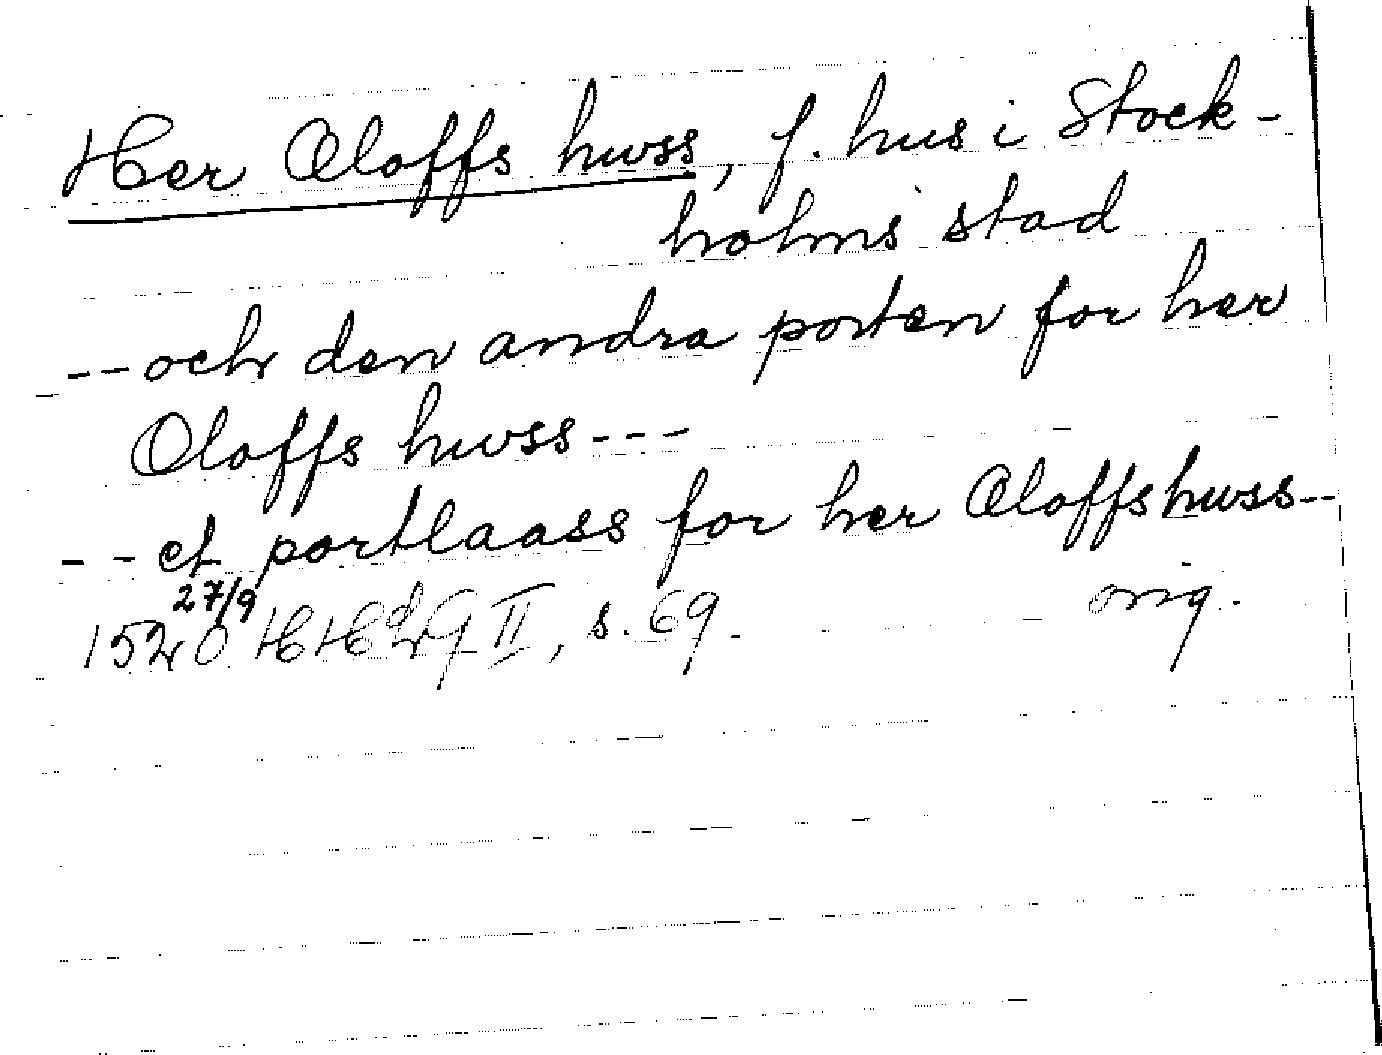 Her Oloffs hwss, f. hus i Stock-
holms stad
-- och den andra porten for her
Oloffs hwss ---
-- et portlaass for her Oloffs hwss --
27/9
1520 II, s. 69. orig.